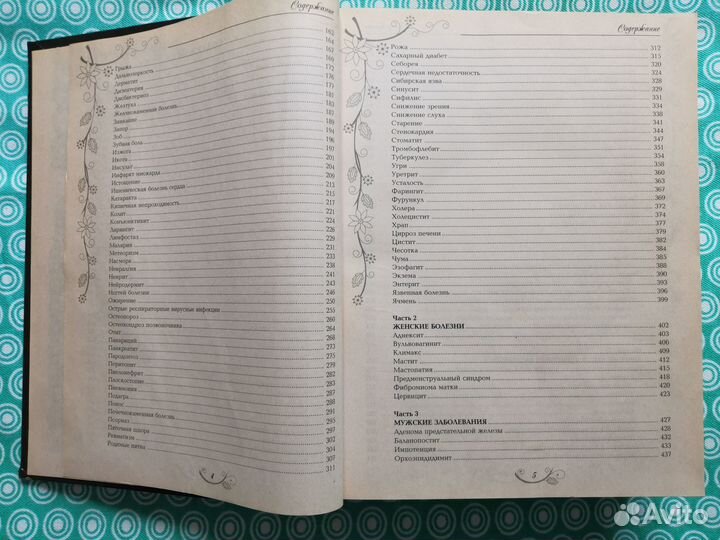 Содержание
Грыжа 163
Дальнозоркость 164
Дерматит 167
Дизентерия 169
Дисбактериоз 172
Желтуха 176
Желчнокаменная болезнь 177
Заикание 181
Запор 183
Зоб 187
Зубная боль 189
Изжога 194
Икота 196
Инсульт 197
Инфаркт миокарда 201
Истощение 204
Ишемическая болезнь сердца
Катаракта
Кишечная непроходимость 213
Колит 215
Конъюнктивит 217
Ларингит 221
Лимфостаз 224
Малярия 226
Метеоризм 229
Насморк 231
Невралгия 233
Неврит 238
Нейродермит 241
Ногтей болезни 243
Ожирение 246
Острые респираторные вирусные инфекции 250
Остеопороз 255
Остеохондроз позвоночника 260
Отит 264
Панариций 268
Панкреатит 273
Пародонтоз 275
Перитонит 278
Пиелонефрит 282
Плоскостопие 287
Пневмония 288
Подагра 291
Понос 295
Почечнокаменная болезнь 297
Псориаз 302
Пяточная шпора 304
Ревматизм 307
Родимые пятна 311
4
Содержание
Рожа 312
Сахарный диабет 315
Себорея 320
Сердечная недостаточность 324
Сибирская язва 328
Синусит 329
Сифилис 331
Снижение зрения 334
Снижение слуха 338
Старение 341
Стенокардия 344
Стоматит 347
Тромбофлебит 351
Туберкулез 354
Угри 358
Уретрит 360
Усталость 363
Фарингит 367
Фурункул 369
Холера 372
Холецистит 374
Храп 377
Цирроз печени 379
Цистит 382
Чесотка 384
Чума 385
Эзофагит 388
Экзема 390
Энтерит 393
Язвенная болезнь 396
Ячмень 399
Часть 2
ЖЕНСКИЕ БОЛЕЗНИ 402
Аднексит 403
Вульвовагинит 406
Климакс 409
Мастит 412
Мастопатия 415
Предменструальный синдром 418
Фибромиома матки 420
Цервицит 423
Часть 3
МУЖСКИЕ ЗАБОЛЕВАНИЯ 427
Аденома предстательной железы 428
Баланопостит 432
Импотенция 433
Орхоэпидидимит 437
5
Avito